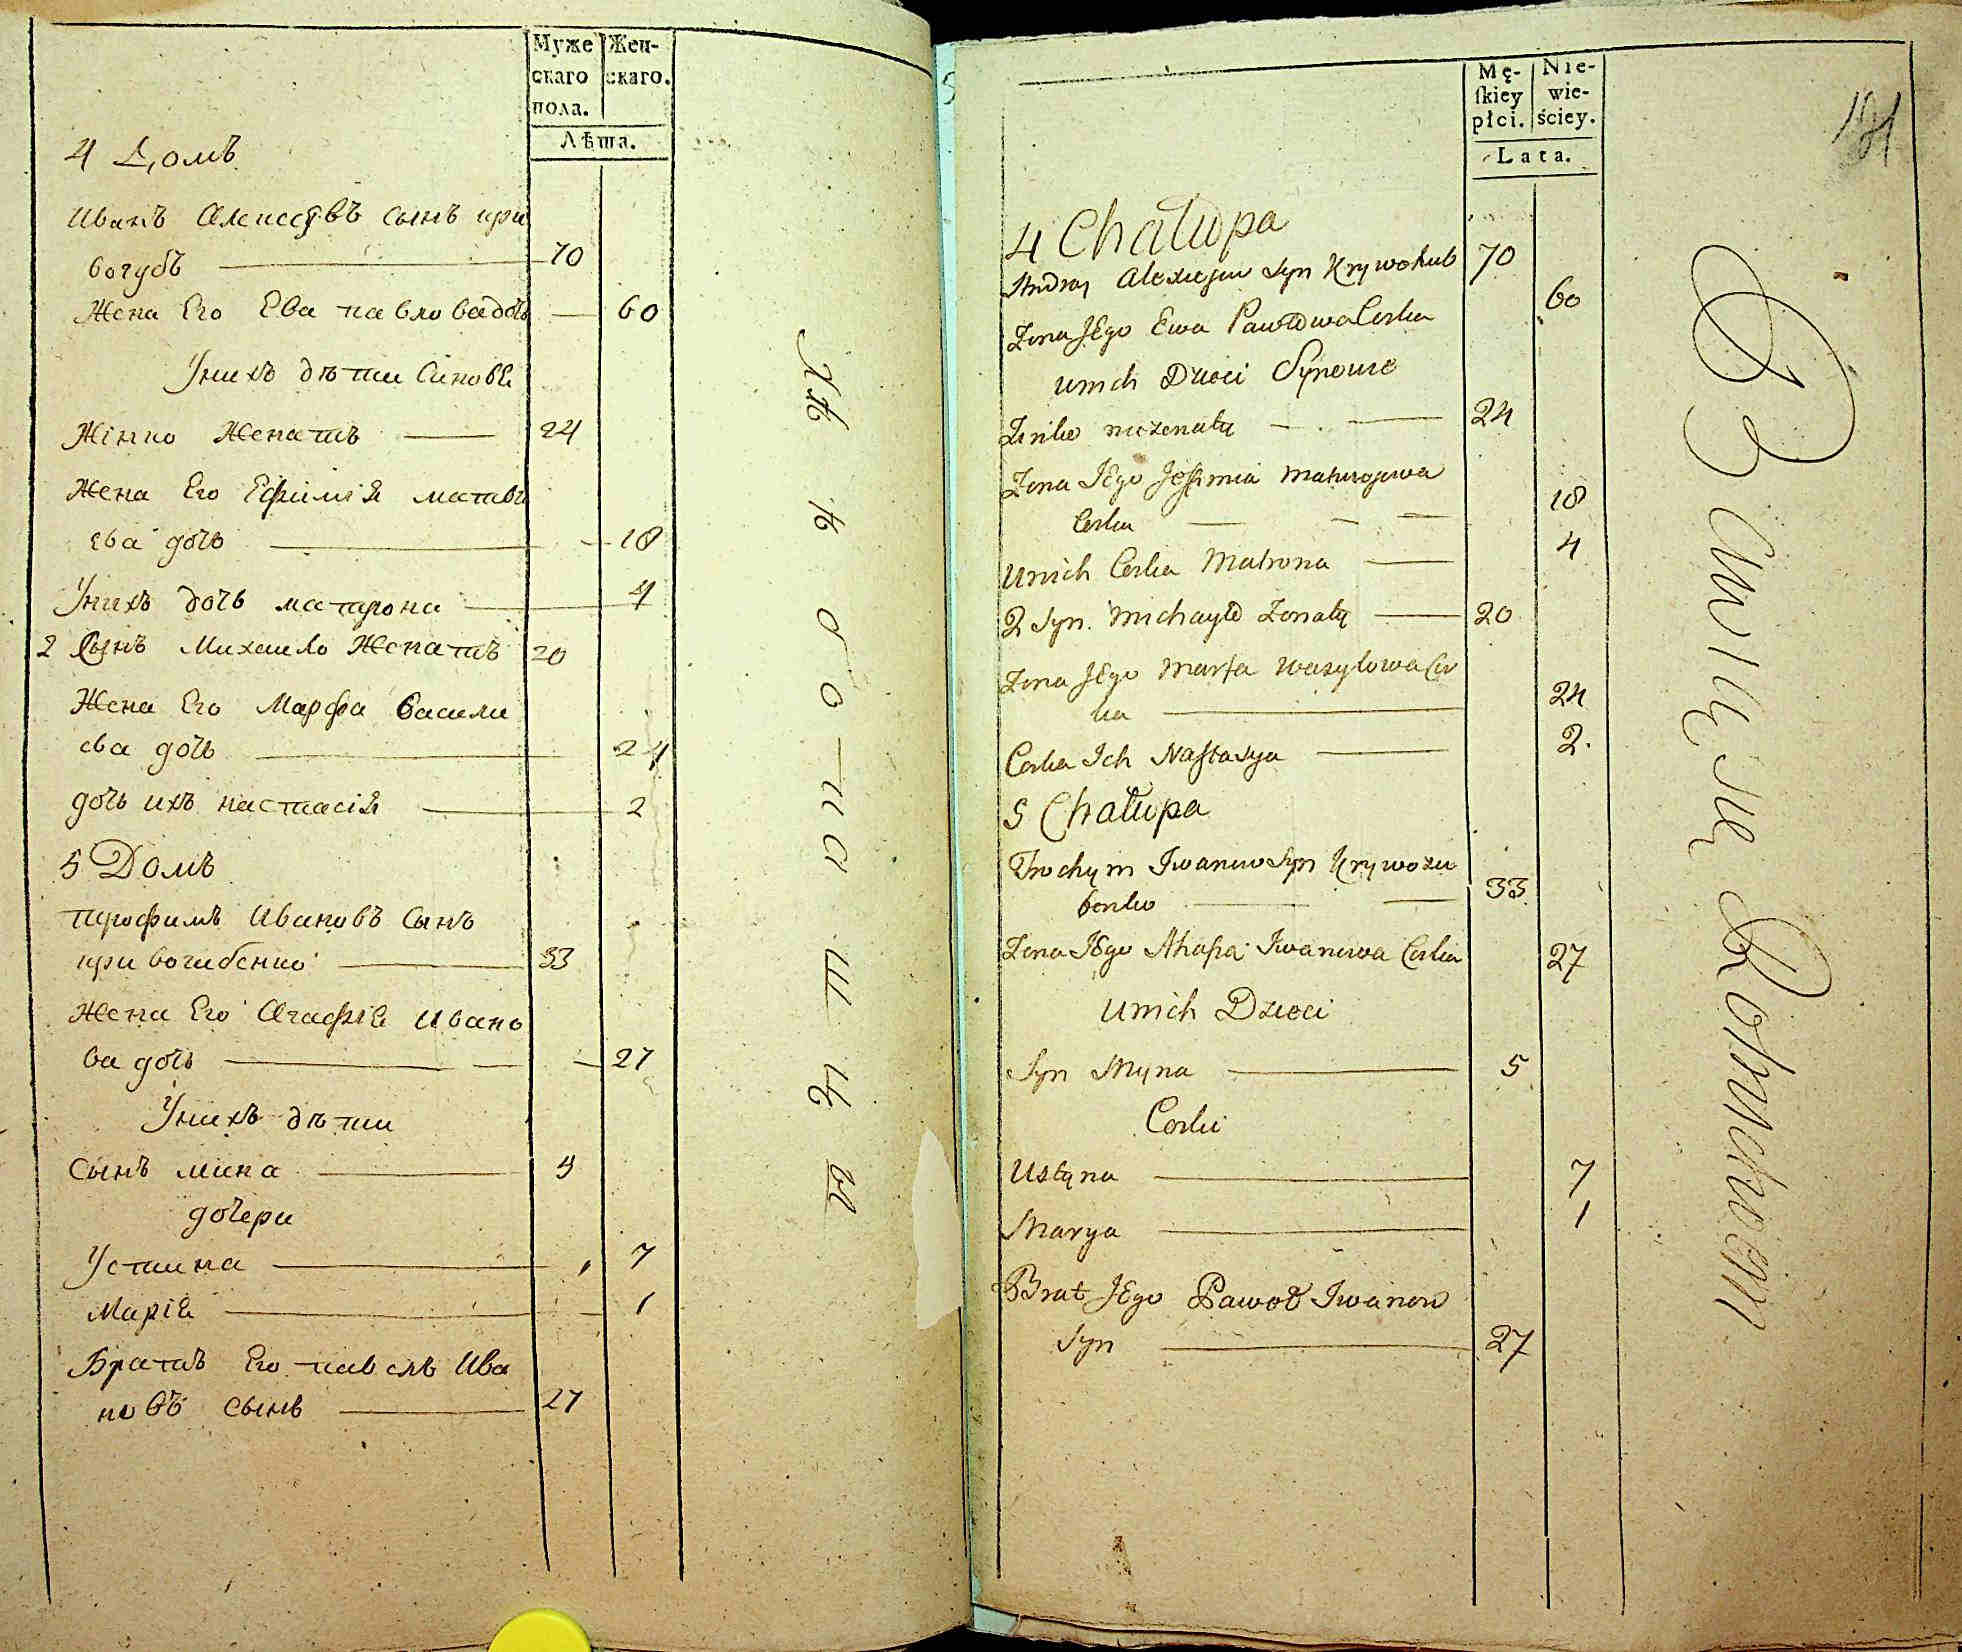 Муже
скаго
пола.
Жен-
скаго.
Лѣта.
4 Домъ
Иванъ Алексеевъ сынъ кри
вогубъ 70
Жена Его Ева павловадочь 60
Унихъ дѣти Синовѣ
Жінко Женатъ 24
Жена Его Ефимія матвѣ
ева дочь 18
Унихъ дочь матрона 4
2 Сынъ Михаило Женатъ 20
Жена Его Марфа Васили
ева дочь 24
дочь ихъ настасія 2
5 Домъ
трофимъ Ивановъ Сынъ
кривогибенко 33
Жена Его Агафія Ивано
ва дочь 27
Унихъ дѣти
Сынъ мина 5
дочери
Устина 7
Марія 1
Братъ Его павелъ Ива
новъ сынъ 27
Mę-
skiey
płci.
Nie-
wie-
ściey.
Lata.
4 Chałupa
Andrey Alexiejew Syn Krywohub 70
Zona JEgo Ewa Pawłowa Corka 60
unich Dzieci Synowie
Zinko niezenaty 24
Zona JEgo Jefimia Matwiejowa
Corka 18
Unich Corka Matrona 4
2 Syn Michayło Zonaty 20
Zona JEgo Marfa Wasylowa Cor
ka 24
Corka Ich Nastasya 2.
5 Chałupa
Trochym Iwanow Syn Krywohu
benko 33
Zona JEgo Ahafia Iwanowa Corka 27
Unich Dzieci
Syn Myna 5
Corki
Ustyna 7
Marya 1
Brat JEgo Paweł Iwanow
Syn 27